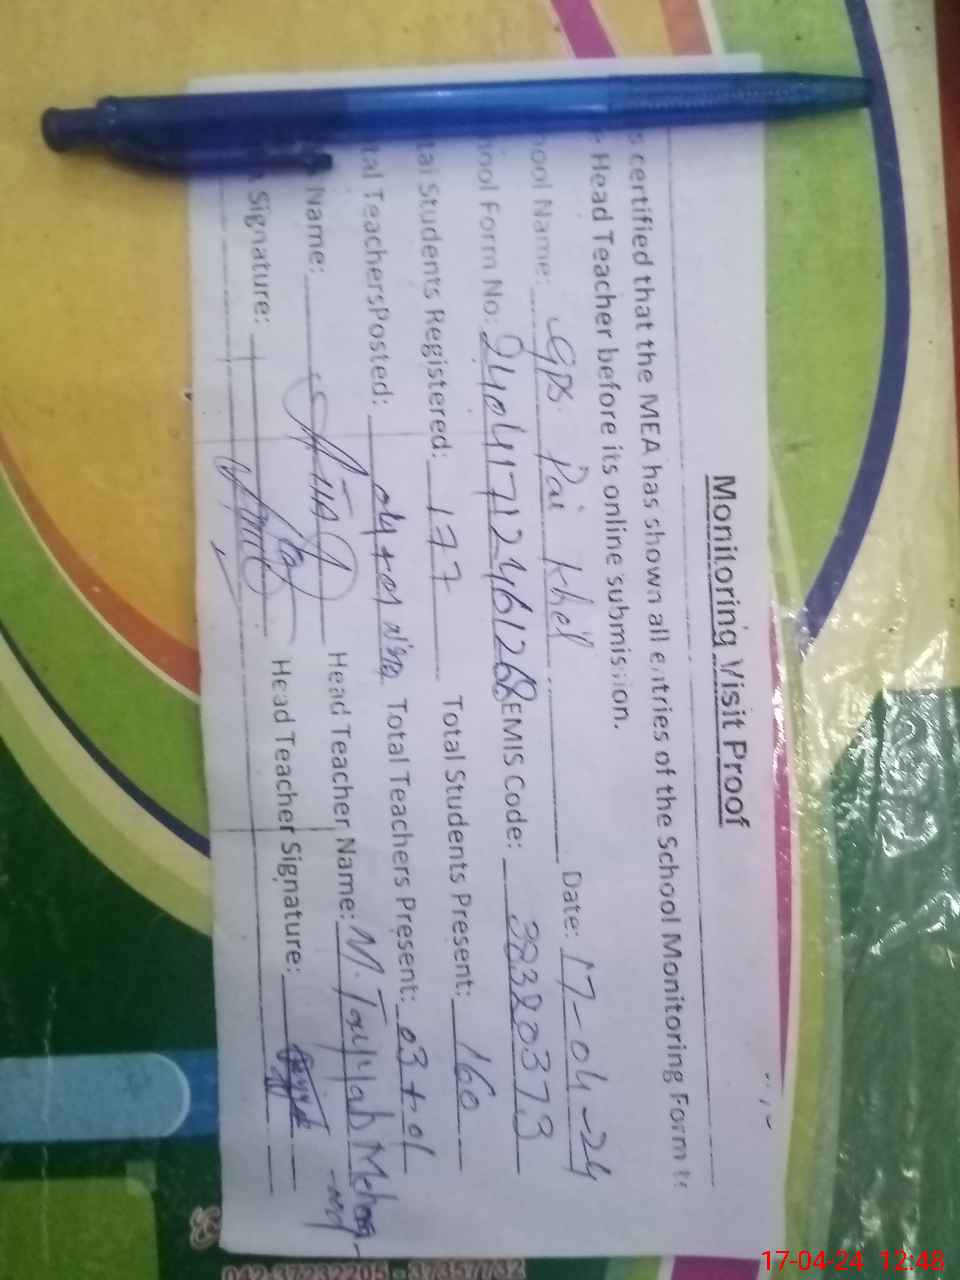 Monitoring Visit Proof
certified that the MEA has shown all entries of the School Monitoring Form to
Head Teacher before its online submission.
ool Name: GPS Pai Khel Date: 17-04-24
ool Form No: 24041712461268 EMIS Code: 38320373
tal Students Registered: 177 Total Students Present: 160
tal TeachersPosted: 04+01 Total Teachers Present: 03+01
Name: Head Teacher Name: M. Tayyab
Signature: Head Teacher Signature:
17-04-24 12:48